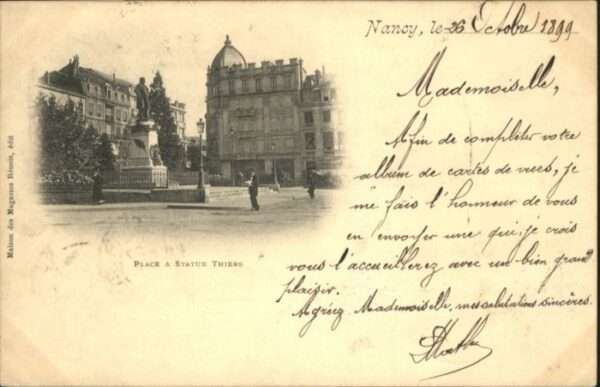 Nancy, le 26 Octobre 1899
Mademoiselle,
Afin de compléter votre
album de cartes de vues, je
me fais l'honneur de vous
en envoyer une qui, je crois
vous l'accueillerez avec un bien grand
plaisir.
Agréez Mademoiselle, mes salutations sincères.
PLACE & STATUE THIERS
Maison des Magasins Réunis, édit